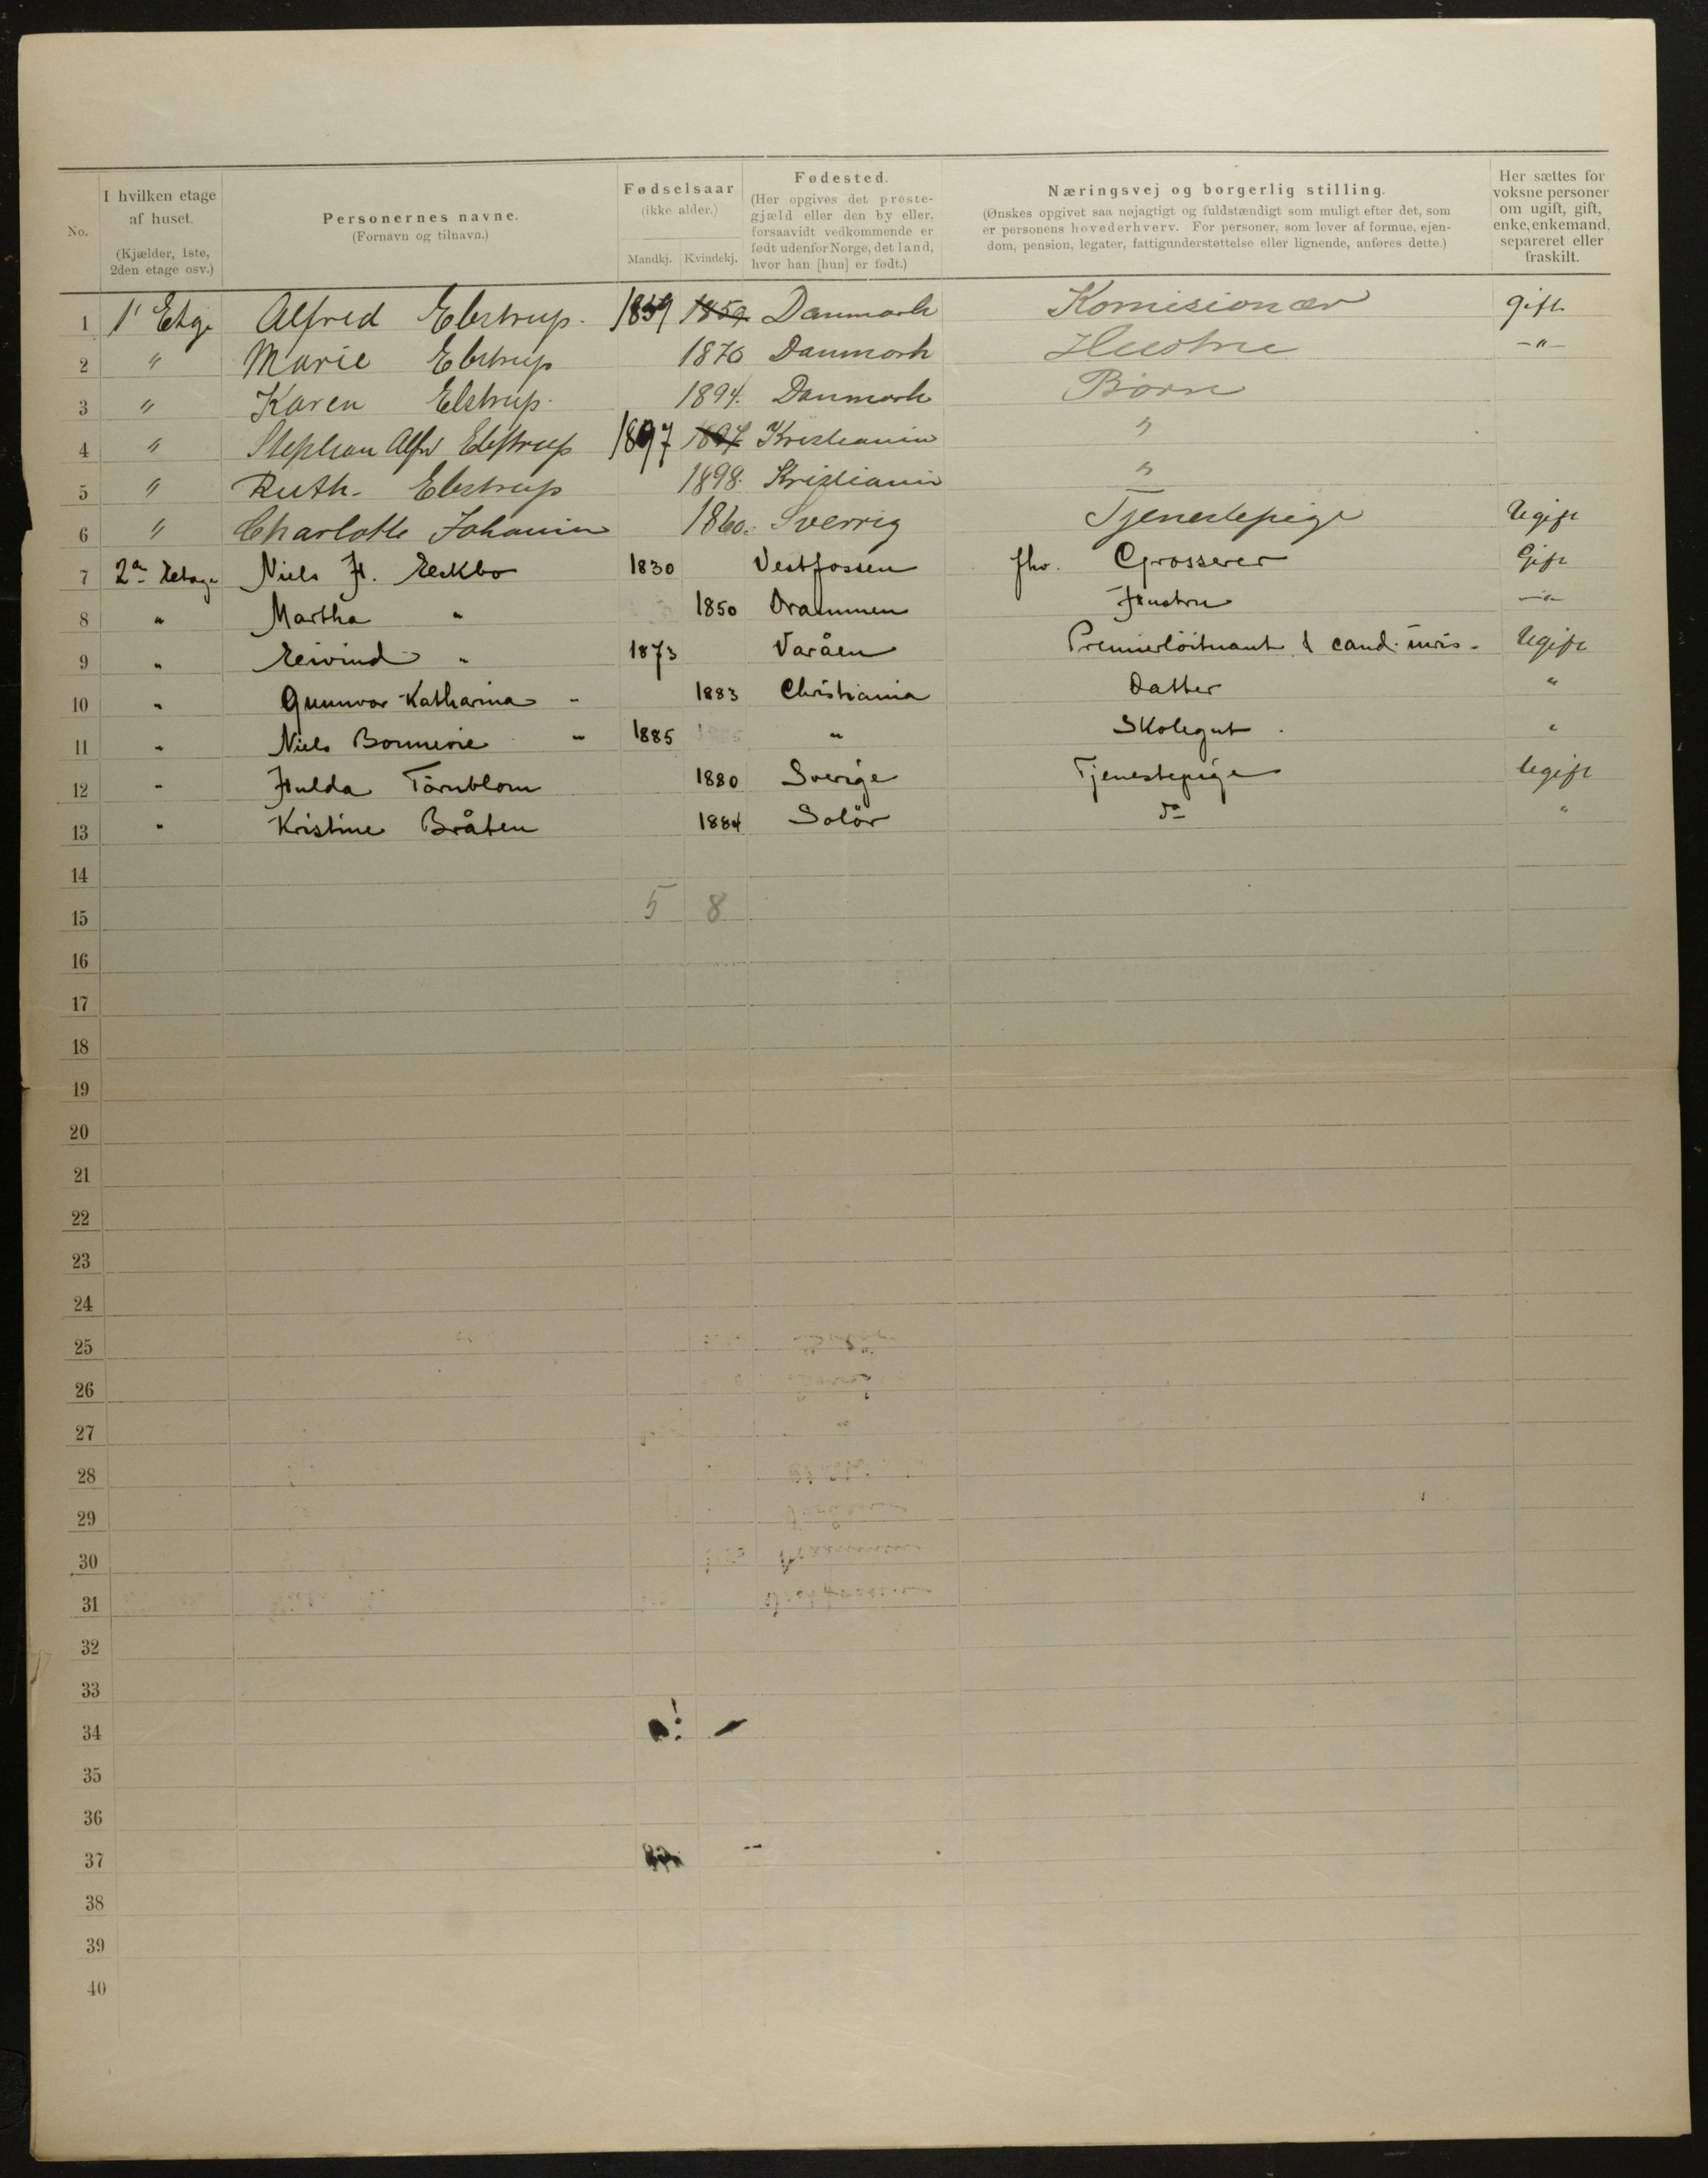 No.
I hvilken etage af huset. (Kjælder, 1ste, 2den etage osv.)
Personernes navne. (Fornavn og tilnavn.)
Fødselsaar (ikke alder.) Mandkj. Kvindekj.
Fødested. (Her opgives det prestegjæld eller den by eller, forsaavidt vedkommende er født udenfor Norge, det land, hvor han [hun] er født.)
Næringsvej og borgerlig stilling. (Ønskes opgivet saa nøjagtigt og fuldstændigt som muligt efter det, som er personens hovederhverv. For personer, som lever af formue, ejendom, pension, legater, fattigunderstøttelse eller lignende, anføres dette.)
Her sættes for voksne personer om ugift, gift, enke, enkemand, separeret eller fraskilt.
1 1' Etg. Alfred Ebstrup. 1859 1859 Danmark Komisionær gift
2 " Marie Ebstrup 1870 Danmark Hustru -"-
3 " Karen Ebstrup. 1894. Danmark Børn
4 " Stephan Alfr Ebstrup 1897 1897 Kristiania "
5 " Ruth. Ebstrup 1898. Kristiania "
6 " Charlotte 1860. Sverrig Tjenestepige Ugift
7 2den Etage Niels H. Eckbo 1830 Vestfossen fhv. Grosserer Gift
8 " Martha " 1850 Drammen Hustru -"-
9 " Eivind " 1873 Varåen Premierløitnant & cand. iuris. Ugift
10 " Gunnvor Katharina " 1883 Christiania Datter "
11 " Niels Bonnevie " 1885 " Skolegut. "
12 " Hulda Törnblom 1880 Sverige Tjenestepige Ugift
13 " Kristine Bråten 1884 Solör do "
14
15 5 8
16
17
18
19
20
21
22
23
24
25
26
27
28
29
30
31
32
33
34
35
36
37
38
39
40